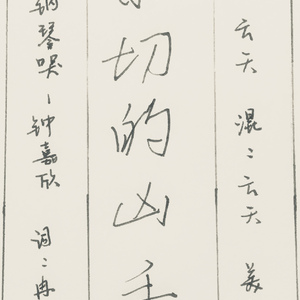 云天 混：云天 美
切的凶手
钢琴哭-钟嘉欣 词：冉